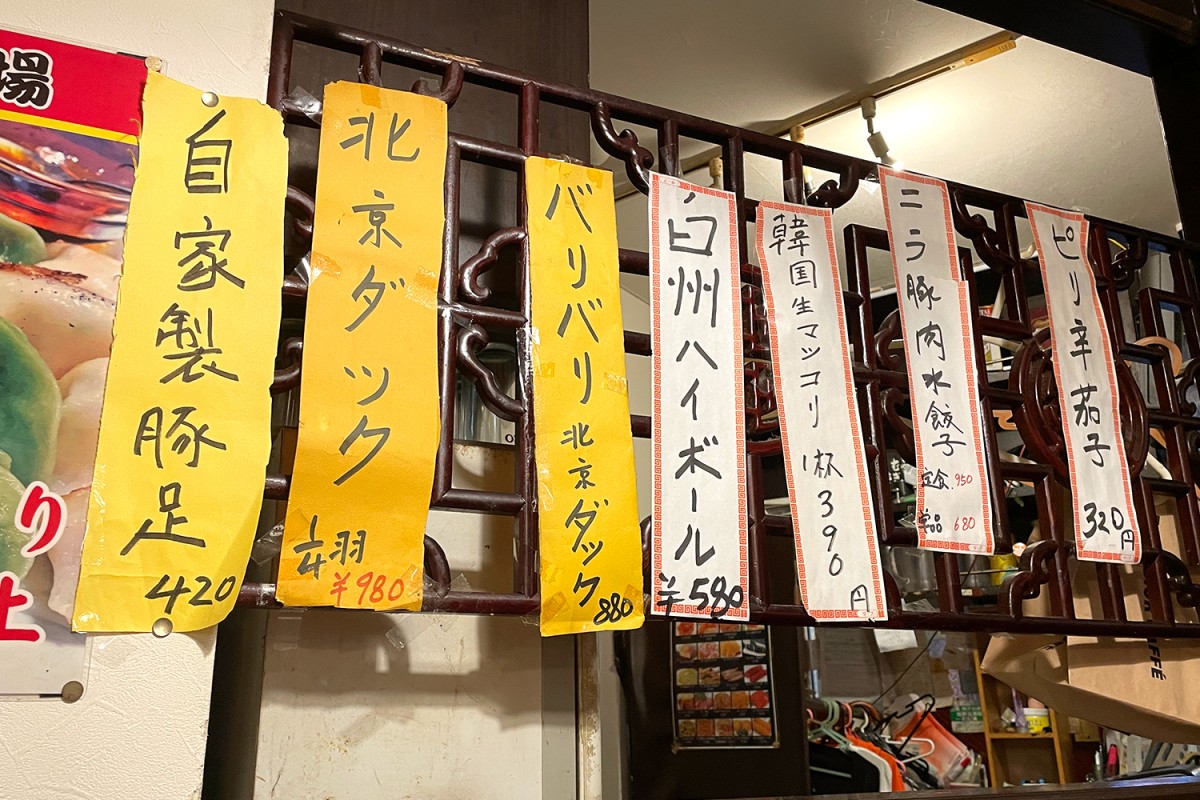 場
り
上
自家製豚足
420
北京ダック
1/4羽
¥980
バリバリ北京ダック
880
白州ハイボール
¥580
韓国生マッコリ 1杯390円
ニラ豚肉水餃子
定食 950
単品 680
ピリ辛茄子
320円